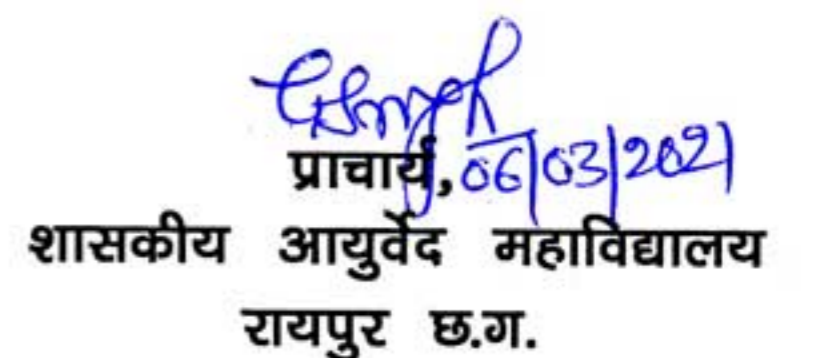 प्राचार्य, 06/03/2021
शासकीय आयुर्वेद महाविद्यालय
रायपुर छ.ग.